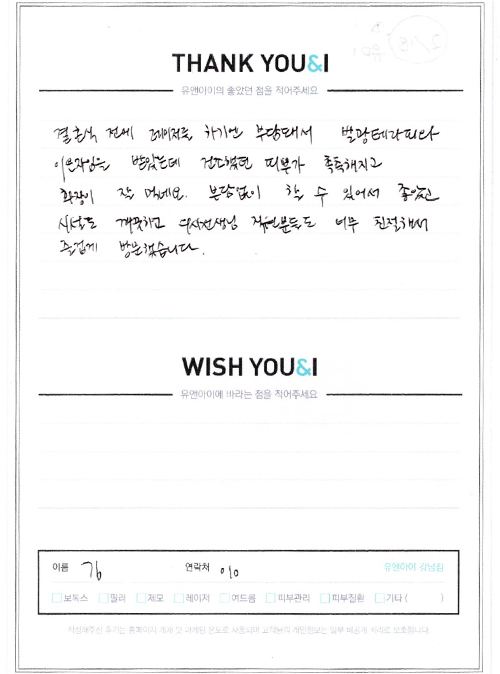 THANK YOU&I
유앤아이의 좋았던 점을 적어주세요
결혼식 전에 레이저를 하기엔 부담돼서 벨랑테라피와
이온자임을 받았는데 건조했던 피부가 촉촉해지고
화장이 잘 먹네요. 부담없이 할 수 있어서 좋았고
시설도 깨끗하고 의사선생님 직원분들도 너무 친절해서
즐겁게 방문했습니다.
WISH YOU&I
유앤아이에 바라는 점을 적어주세요
이름 김 연락처 010 유앤아이 강남점
보톡스 필러 제모 레이저 여드름 피부관리 피부질환 기타 ( )
작성해주신 후기는 홈페이지 게재 및 마케팅 용도로 사용되며 고객님의 개인정보는 일부 비공개 처리로 보호됩니다.